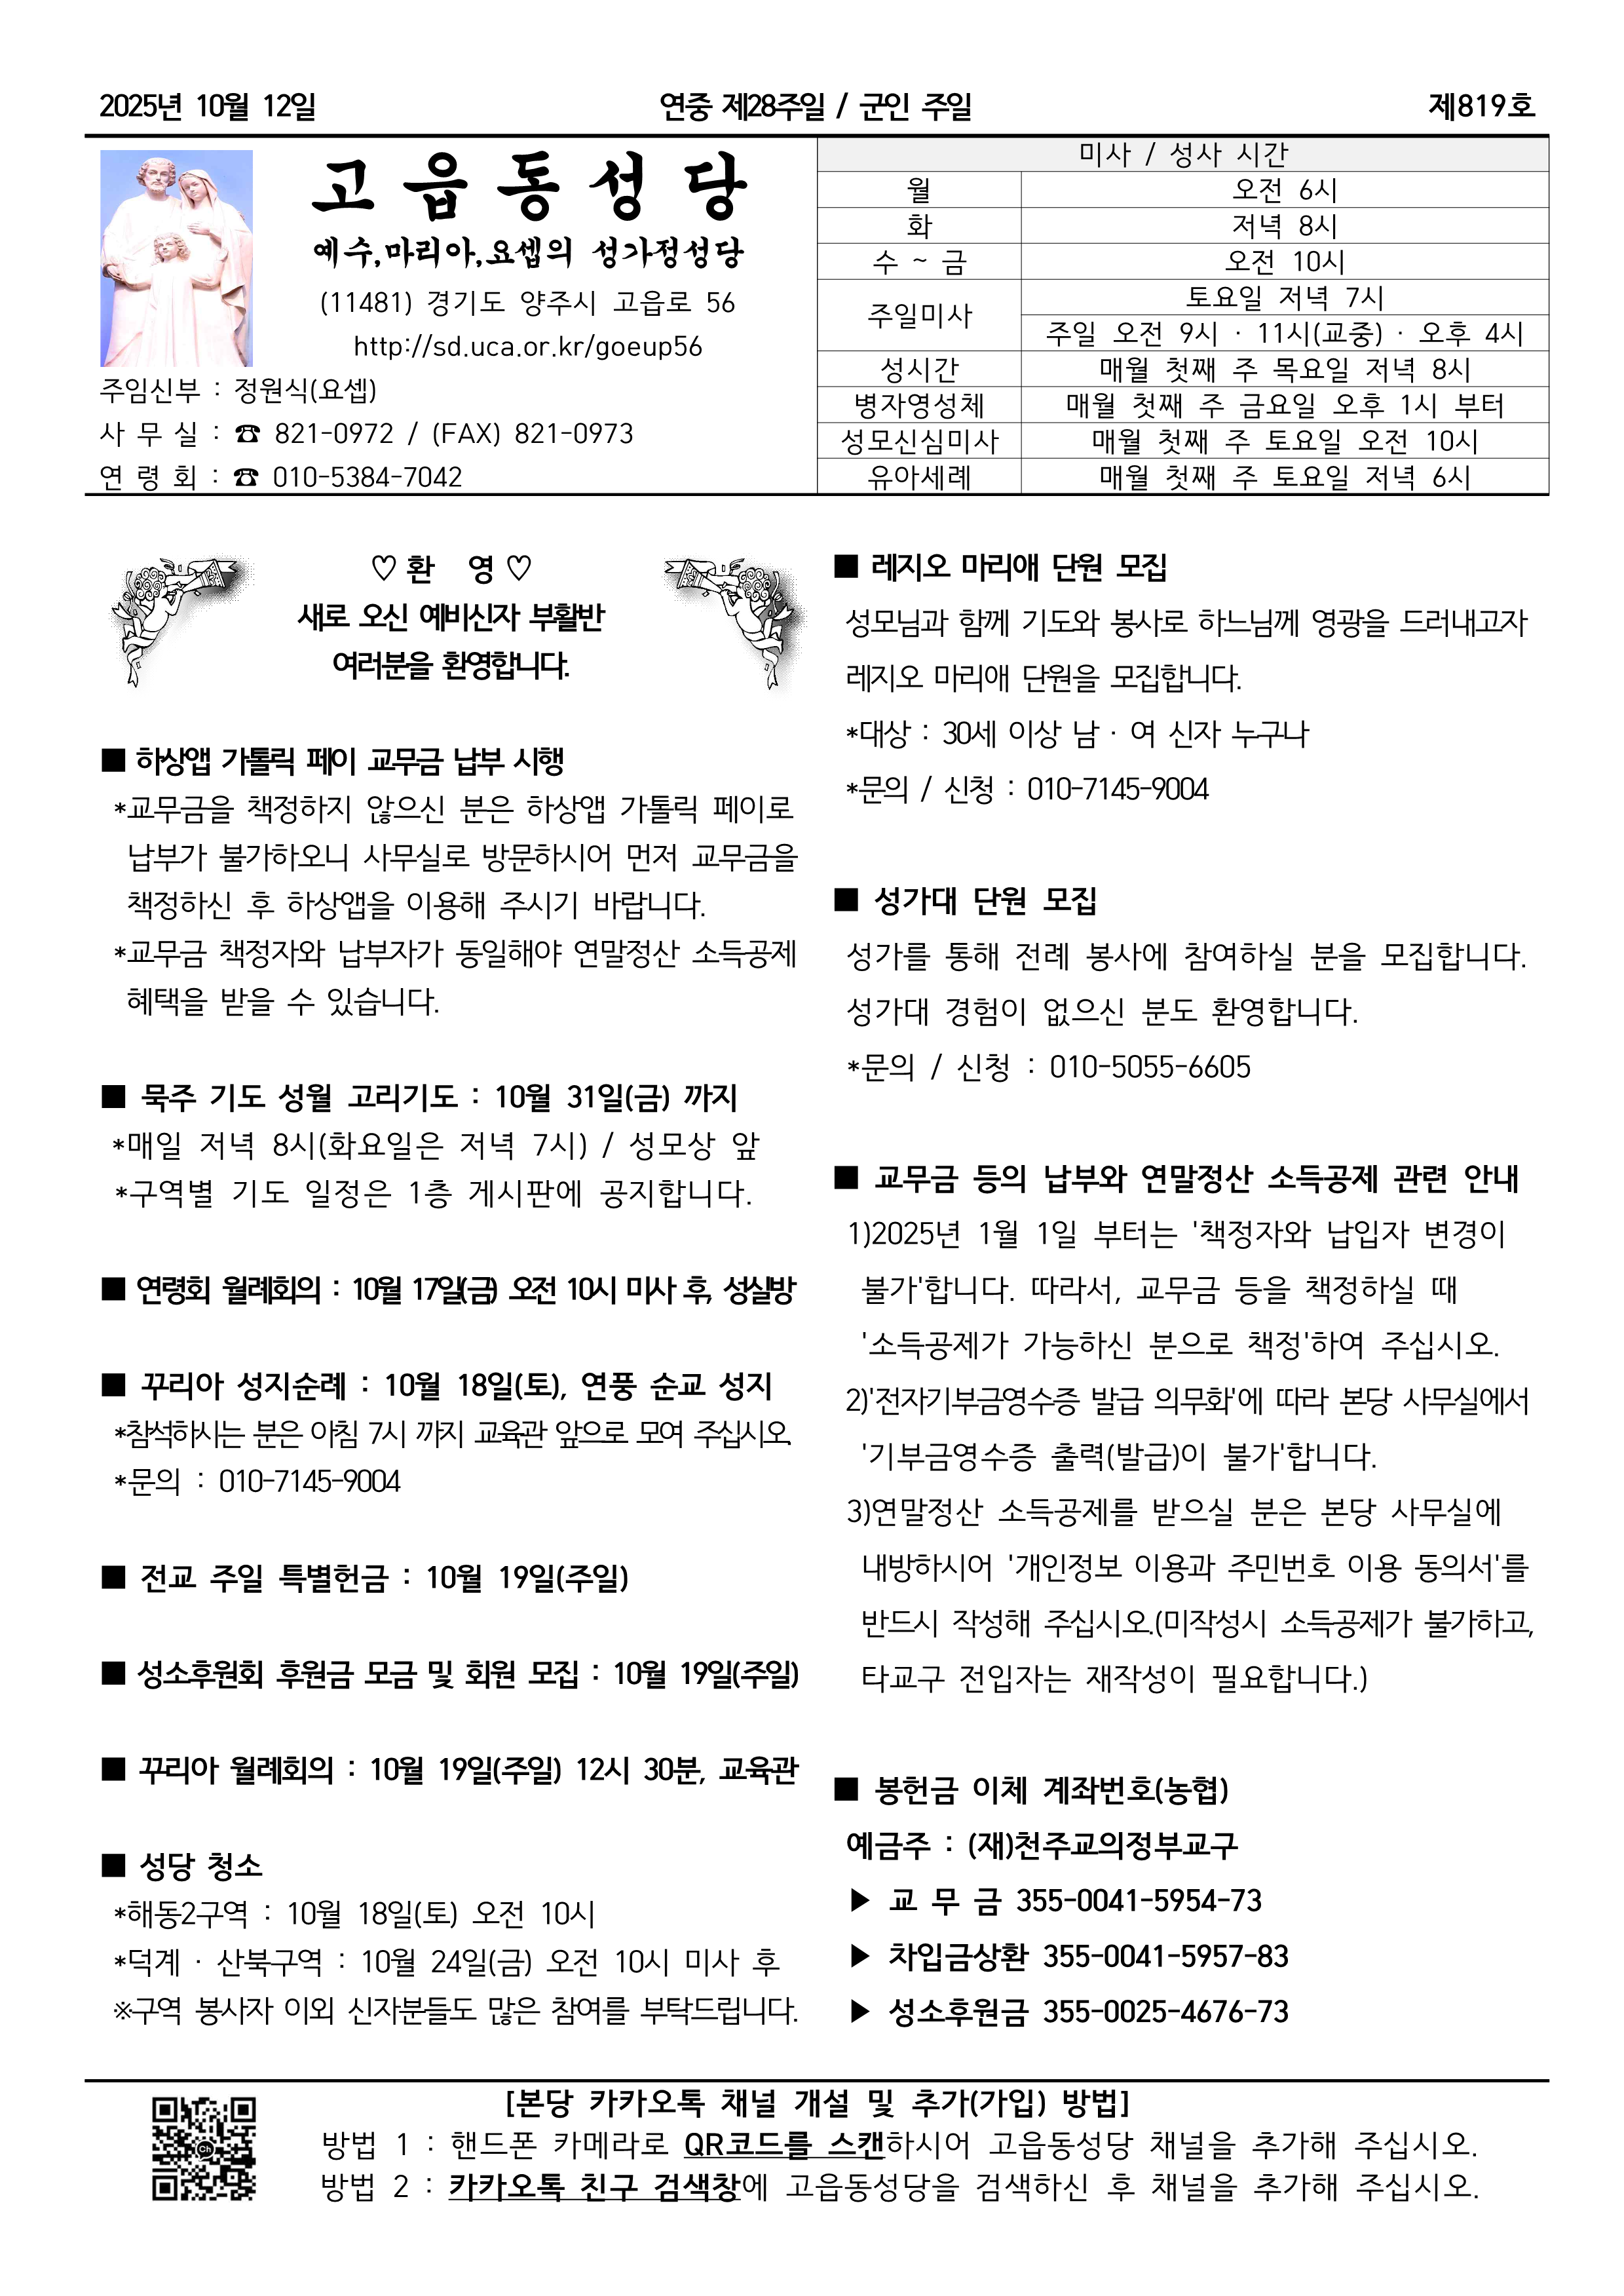 2025년 10월 12일
연중 제28주일 / 군인 주일
제819호
고읍동성당
예수,마리아,요셉의 성가정성당
(11481) 경기도 양주시 고읍로 56
http://sd.uca.or.kr/goeup56
주임신부 : 정원식(요셉)
사 무 실 : ☎ 821-0972 / (FAX) 821-0973
연 령 회 : ☎ 010-5384-7042
미사 / 성사 시간
월 오전 6시
화 저녁 8시
수 ~ 금 오전 10시
주일미사 토요일 저녁 7시
주일 오전 9시 · 11시(교중) · 오후 4시
성시간 매월 첫째 주 목요일 저녁 8시
병자영성체 매월 첫째 주 금요일 오후 1시 부터
성모신심미사 매월 첫째 주 토요일 오전 10시
유아세례 매월 첫째 주 토요일 저녁 6시
♡ 환 영 ♡
새로 오신 예비신자 부활반
여러분을 환영합니다.
■ 하상앱 가톨릭 페이 교무금 납부 시행
*교무금을 책정하지 않으신 분은 하상앱 가톨릭 페이로
납부가 불가하오니 사무실로 방문하시어 먼저 교무금을
책정하신 후 하상앱을 이용해 주시기 바랍니다.
*교무금 책정자와 납부자가 동일해야 연말정산 소득공제
혜택을 받을 수 있습니다.
■ 묵주 기도 성월 고리기도 : 10월 31일(금) 까지
*매일 저녁 8시(화요일은 저녁 7시) / 성모상 앞
*구역별 기도 일정은 1층 게시판에 공지합니다.
■ 연령회 월례회의 : 10월 17일(금) 오전 10시 미사 후, 성실방
■ 꾸리아 성지순례 : 10월 18일(토), 연풍 순교 성지
*참석하시는 분은 아침 7시 까지 교육관 앞으로 모여 주십시오.
*문의 : 010-7145-9004
■ 전교 주일 특별헌금 : 10월 19일(주일)
■ 성소후원회 후원금 모금 및 회원 모집 : 10월 19일(주일)
■ 꾸리아 월례회의 : 10월 19일(주일) 12시 30분, 교육관
■ 성당 청소
*해동2구역 : 10월 18일(토) 오전 10시
*덕계 · 산북구역 : 10월 24일(금) 오전 10시 미사 후
※구역 봉사자 이외 신자분들도 많은 참여를 부탁드립니다.
■ 레지오 마리애 단원 모집
성모님과 함께 기도와 봉사로 하느님께 영광을 드러내고자
레지오 마리애 단원을 모집합니다.
*대상 : 30세 이상 남 · 여 신자 누구나
*문의 / 신청 : 010-7145-9004
■ 성가대 단원 모집
성가를 통해 전례 봉사에 참여하실 분을 모집합니다.
성가대 경험이 없으신 분도 환영합니다.
*문의 / 신청 : 010-5055-6605
■ 교무금 등의 납부와 연말정산 소득공제 관련 안내
1)2025년 1월 1일 부터는 '책정자와 납입자 변경이
불가'합니다. 따라서, 교무금 등을 책정하실 때
'소득공제가 가능하신 분으로 책정'하여 주십시오.
2)'전자기부금영수증 발급 의무화'에 따라 본당 사무실에서
'기부금영수증 출력(발급)이 불가'합니다.
3)연말정산 소득공제를 받으실 분은 본당 사무실에
내방하시어 '개인정보 이용과 주민번호 이용 동의서'를
반드시 작성해 주십시오.(미작성시 소득공제가 불가하고,
타교구 전입자는 재작성이 필요합니다.)
■ 봉헌금 이체 계좌번호(농협)
예금주 : (재)천주교의정부교구
▶ 교 무 금 355-0041-5954-73
▶ 차입금상환 355-0041-5957-83
▶ 성소후원금 355-0025-4676-73
[본당 카카오톡 채널 개설 및 추가(가입) 방법]
방법 1 : 핸드폰 카메라로 QR코드를 스캔하시어 고읍동성당 채널을 추가해 주십시오.
방법 2 : 카카오톡 친구 검색창에 고읍동성당을 검색하신 후 채널을 추가해 주십시오.
Ch